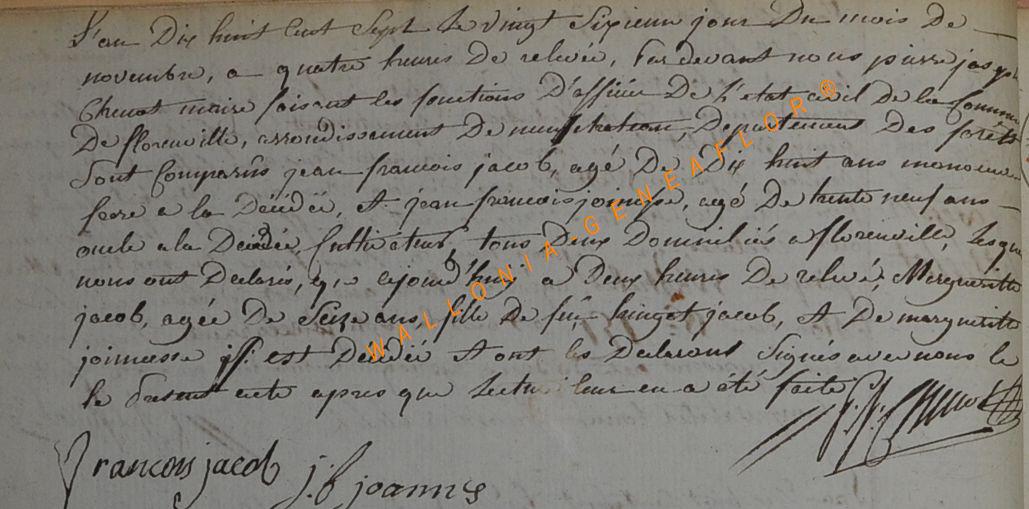 L'an Dix huit cent Sept Le vingt Sixieme jour Du mois de
novembre, a quatre heures De relevée, Pardevant nous pierre joseph
Chenot maire faisant les fonctions D'officier De l'etat civil de la Commune
De florenville, arrondissement De neufchateau, Departement Des forets
Sont Comparus jean francois jacob, agé De Dix huit ans manouvrier
frere a la Décédée, Et jean francois, agé De trente neuf ans
oncle a la Décédée, Cultivateur, tous Deux Domiciliés a florenville, Lesquels
nous ont Declaré, que ajourd'huy a Deux heures De relevée, Marguerite
jacob, agée De Seize ans, fille De feu jacob, Et De marguerite
est Décédée Et ont les Declarants Signés avec nous le
le present acte apres que Lecture leur en a été faite
P. J. Chenot
francois jacob
j. f joannes
WALLONIA GENEAFLOR ®